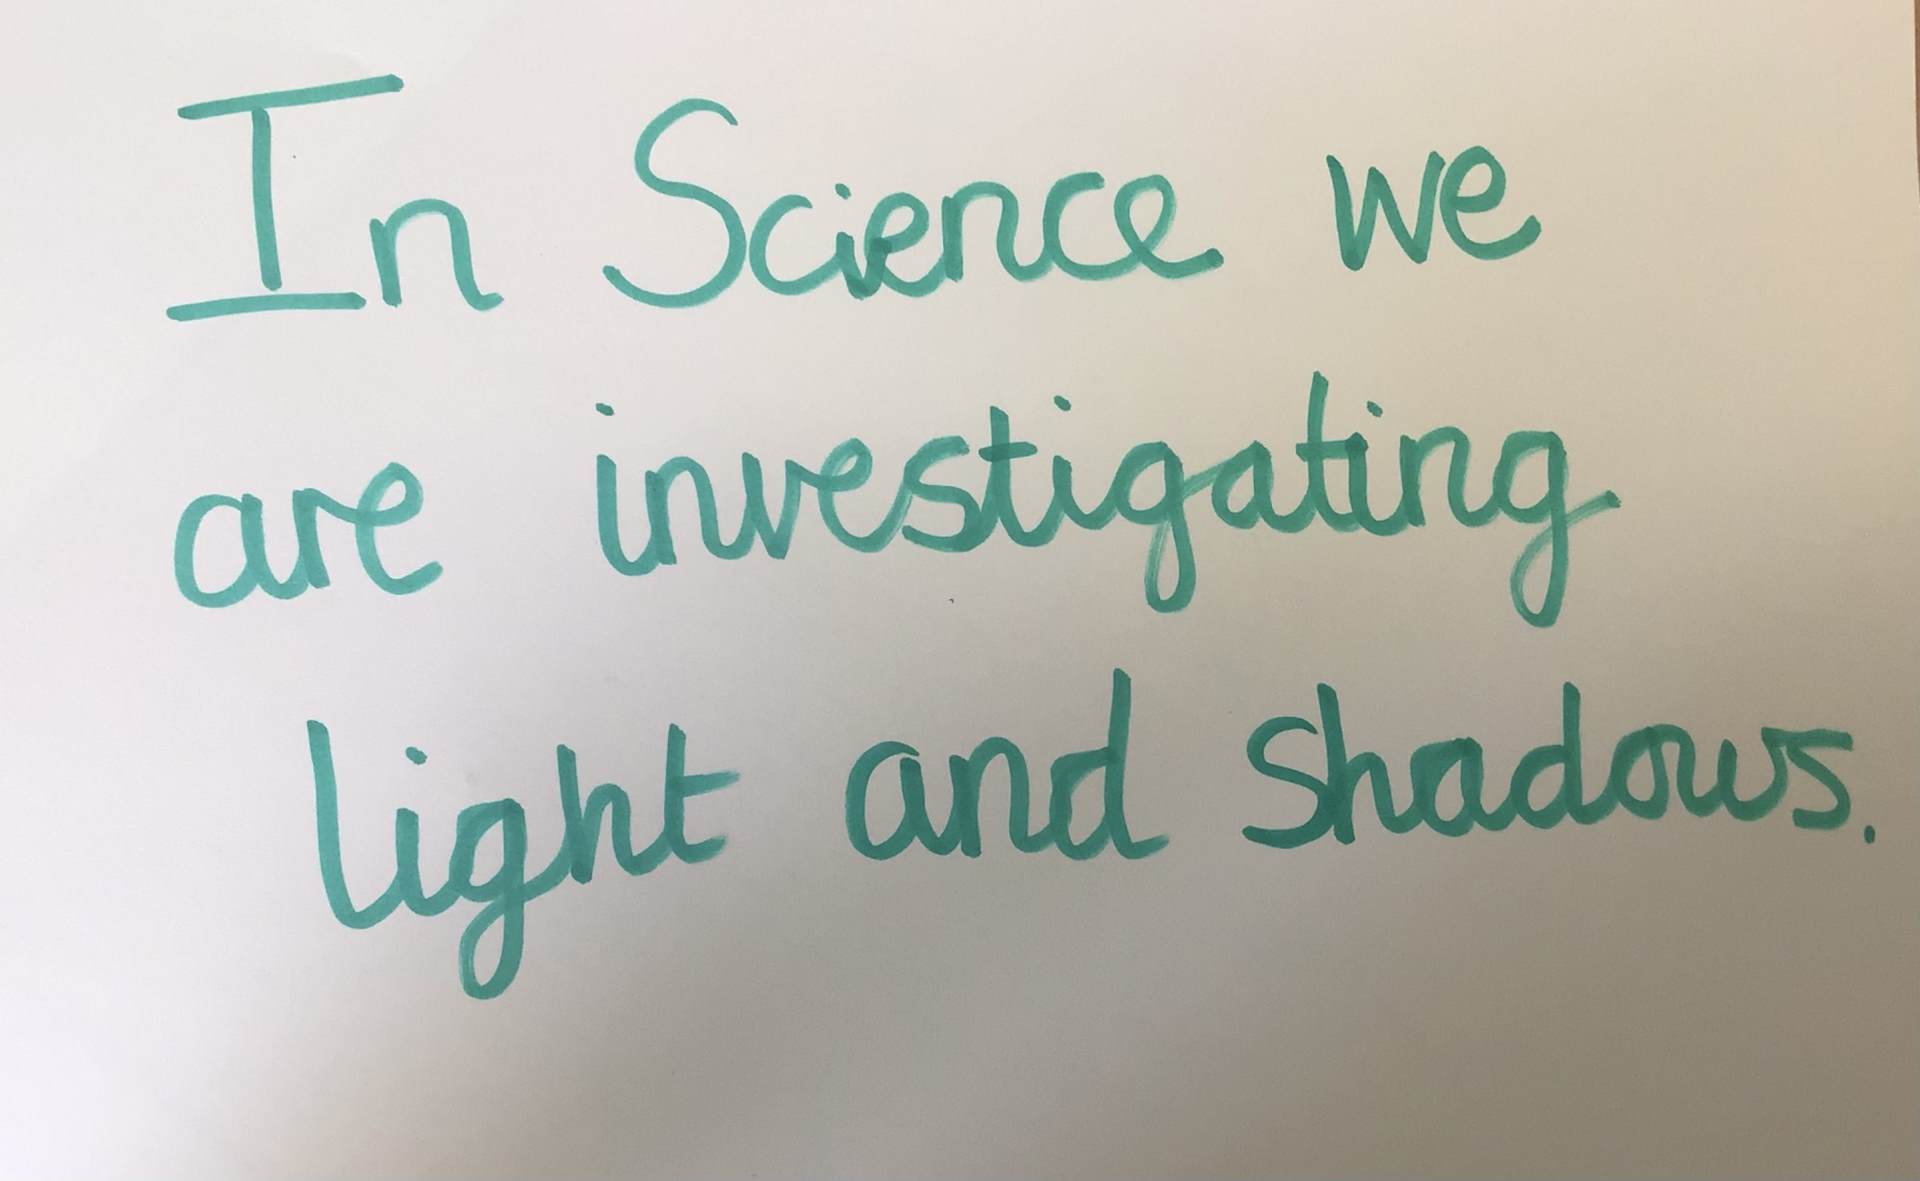 In Science we
are investigating
light and shadows.